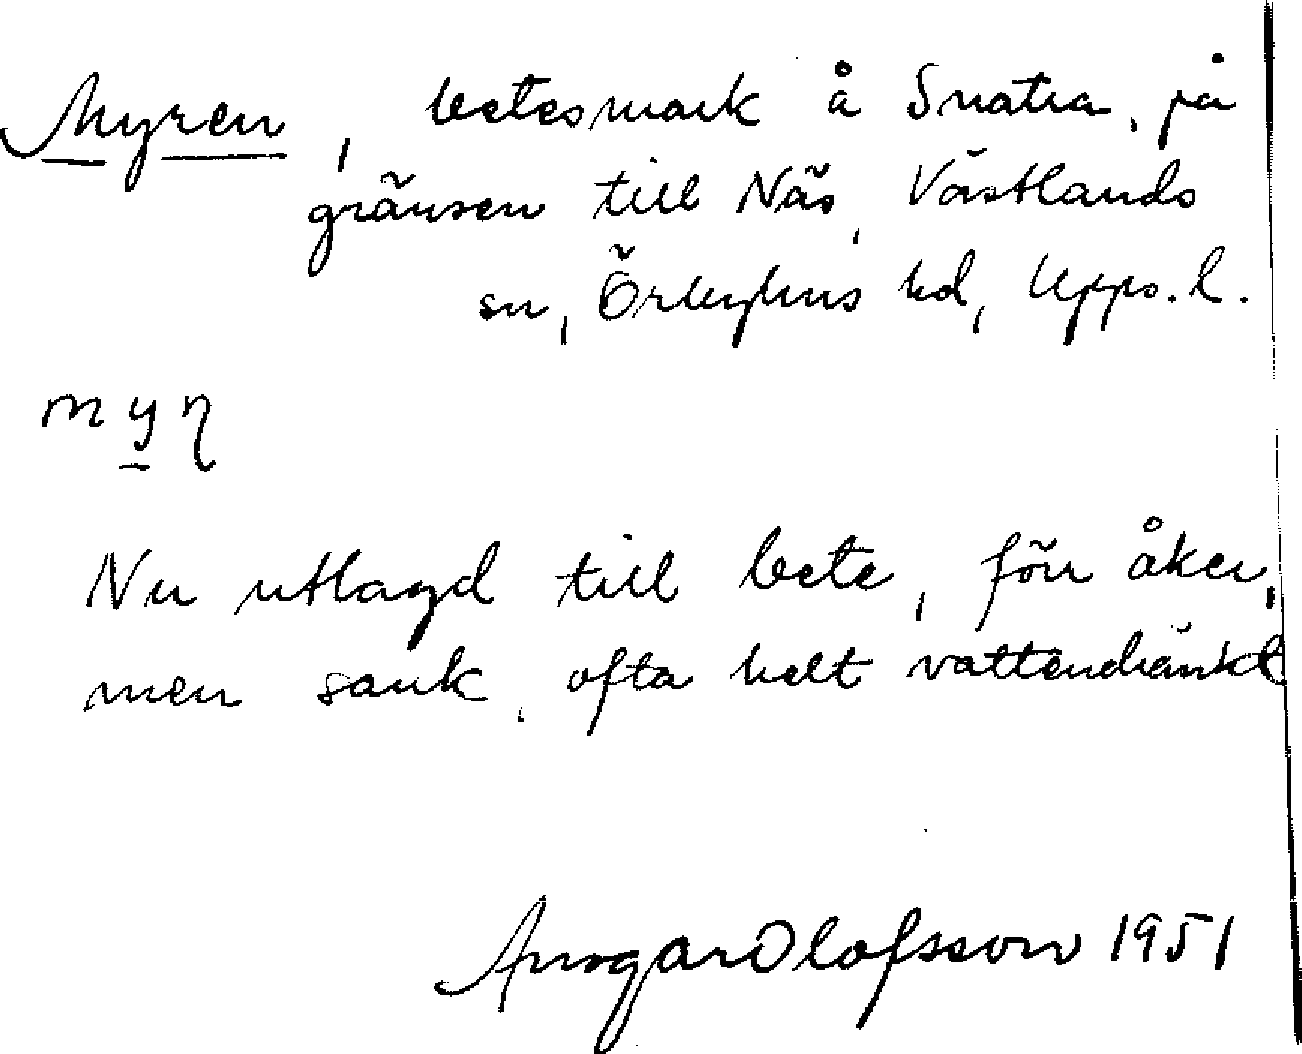 Myren, betesmark å Snatra, på
gränsen till Näs, Västlands
sn, Örbyhus hd, Upps. l.
myɳ
Nu utlagd till bete, förr åker,
men sank, ofta helt vattendränkt
Ansgar Olofsson 1951